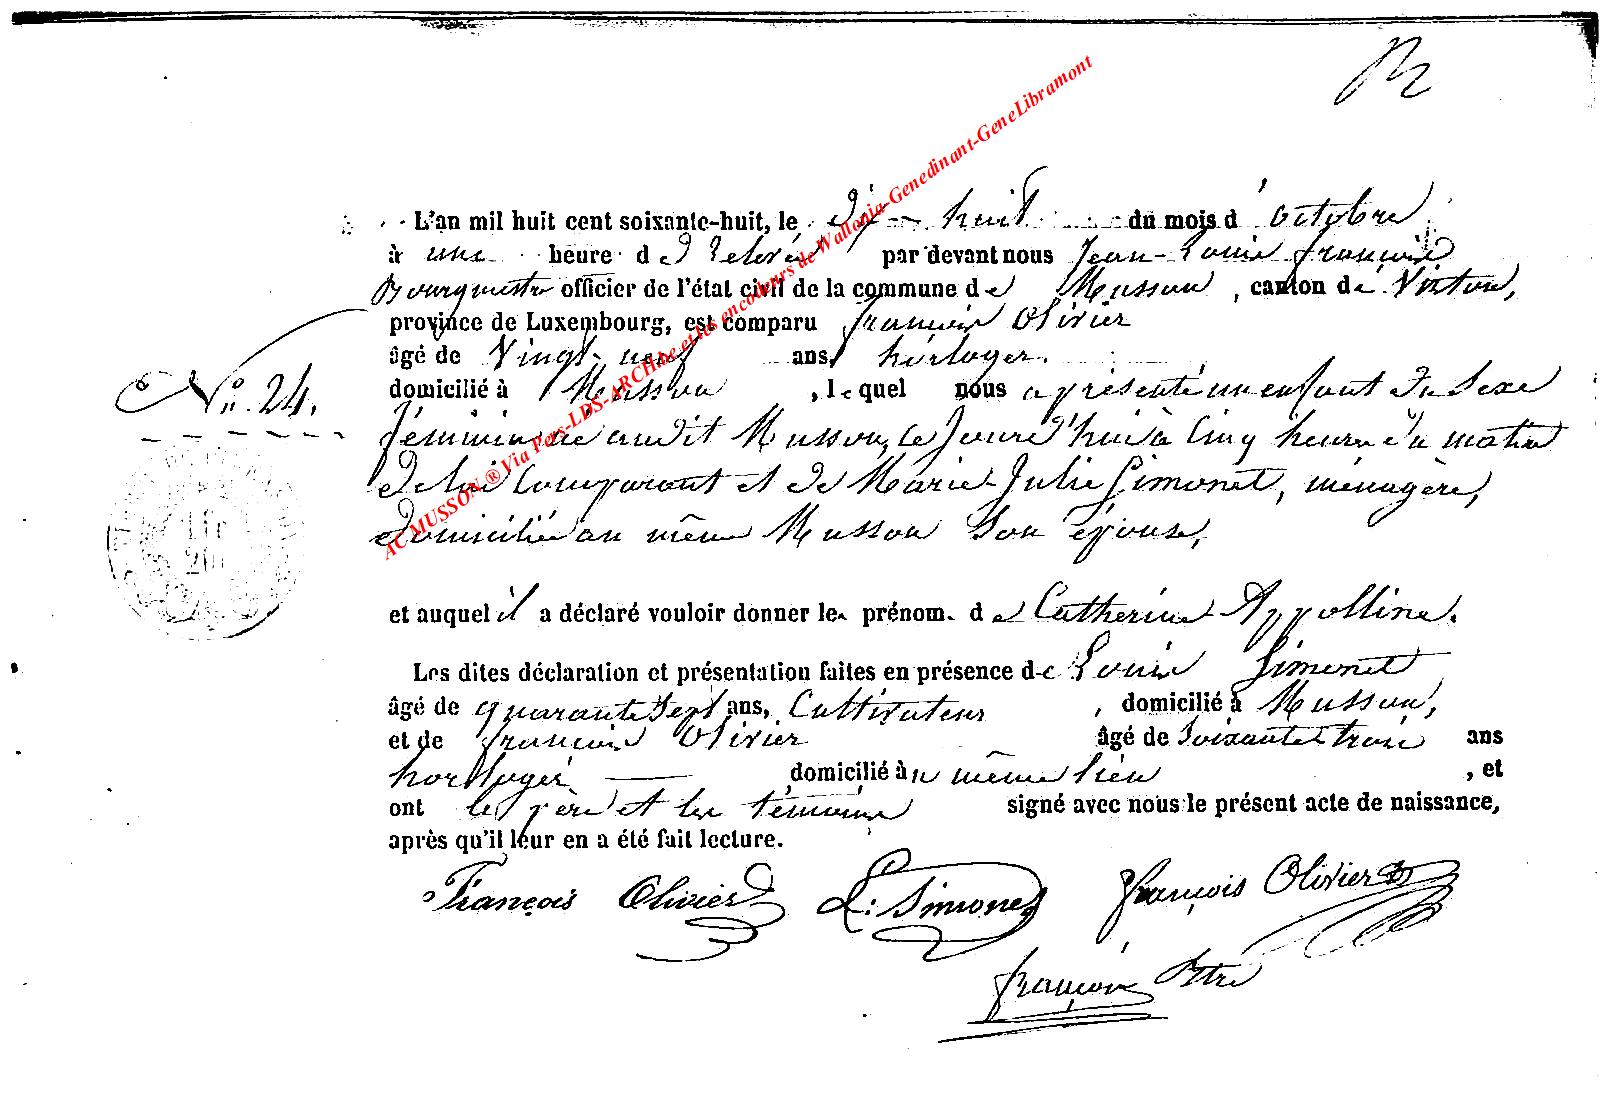 L'an mil huit cent soixante-huit, le dix-huit du mois d'octobre
à une heure de relevée par devant nous Jean-Louis François
Bourgmestre officier de l'état civil de la commune de Musson, canton de Virton,
province de Luxembourg, est comparu François Olivier
âgé de Vingt-neuf ans, horloger.
N° 24. domicilié à Musson, lequel nous a présenté un enfant du Sexe
féminin né audit Musson, ce jourd'hui à Cinq heures du matin
de lui Comparant et de Marie-Julie Simonet, ménagère,
domiciliée au même Musson Son épouse,
1 fr
20
et auquel il a déclaré vouloir donner les prénom. de Catherine Appolline.
Les dites déclaration et présentation faites en présence de Louis Simonet
âgé de quarante Sept ans, Cultivateur, domicilié à Musson,
et de François Olivier âgé de Soixante trois ans
horloger domicilié au même lieu, et
ont le père et les témoins signé avec nous le présent acte de naissance,
après qu'il leur en a été fait lecture.
François Olivier L: Simonet François Olivier
François
AC MUSSON ® Via Pers-LDS-ARCHbe et les encodeurs de Wallonia-Genedinant-GeneLibramont